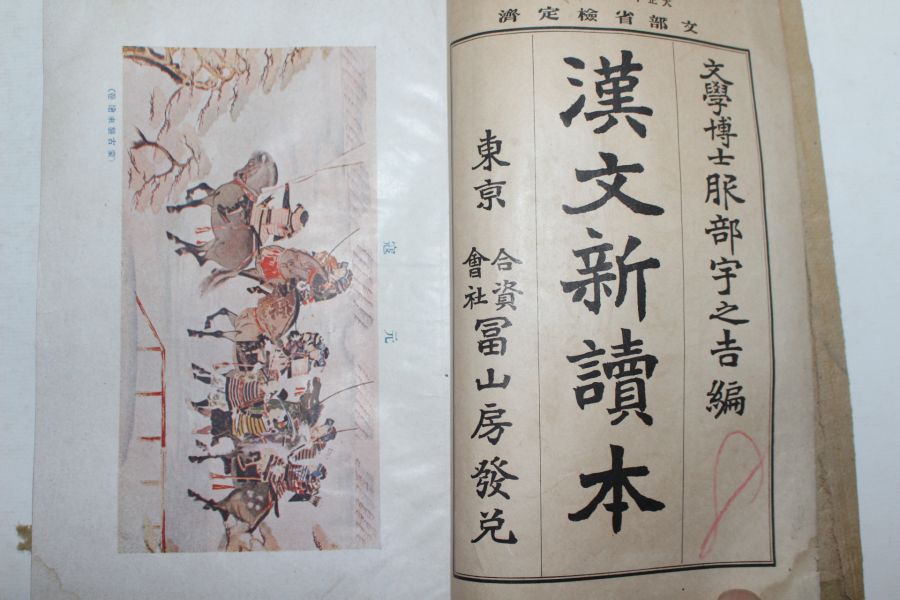 文部省檢定濟
文學博士服部宇之吉編
漢文新讀本
東京 合資會社冨山房發兌
元寇
(蒙古襲來繪卷)